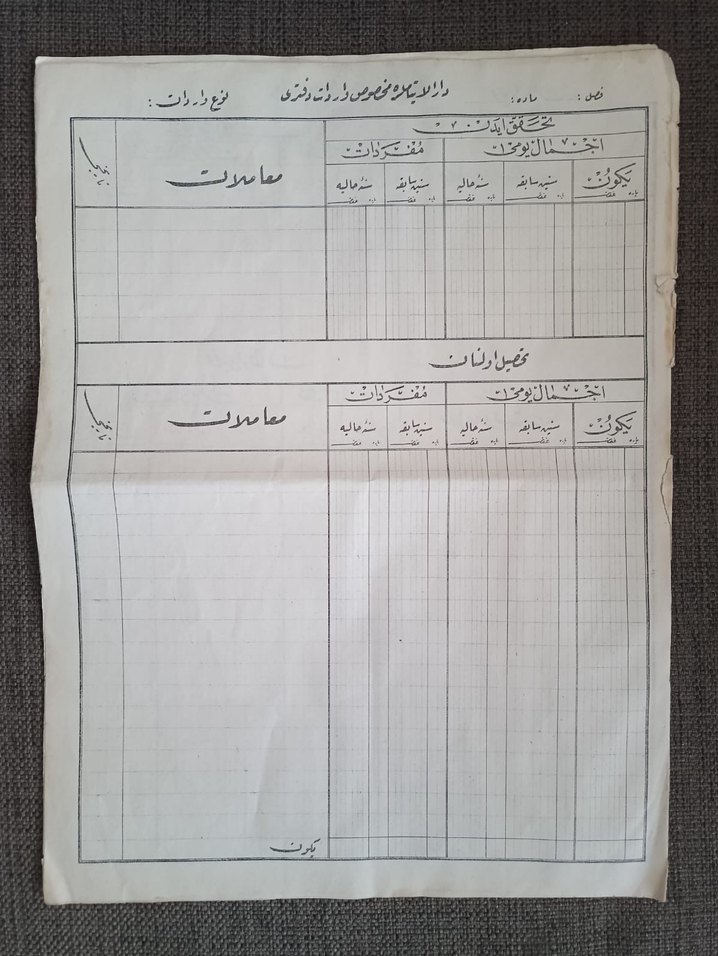 فصل : ماده : دار الایتاملره مخصوص واردات دفتری نوع واردات :
تحقق ایدن
اجمال یومی مفردات معاملات تاریخ
یكون سنین سابقه سنهٔ حالیه سنین سابقه سنهٔ حالیه
پاره غروش پاره غروش پاره غروش پاره غروش پاره غروش
تحصیل اولنان
اجمال یومی مفردات معاملات تاریخ
یكون سنین سابقه سنهٔ حالیه سنین سابقه سنهٔ حالیه
پاره غروش پاره غروش پاره غروش پاره غروش پاره غروش
یكون